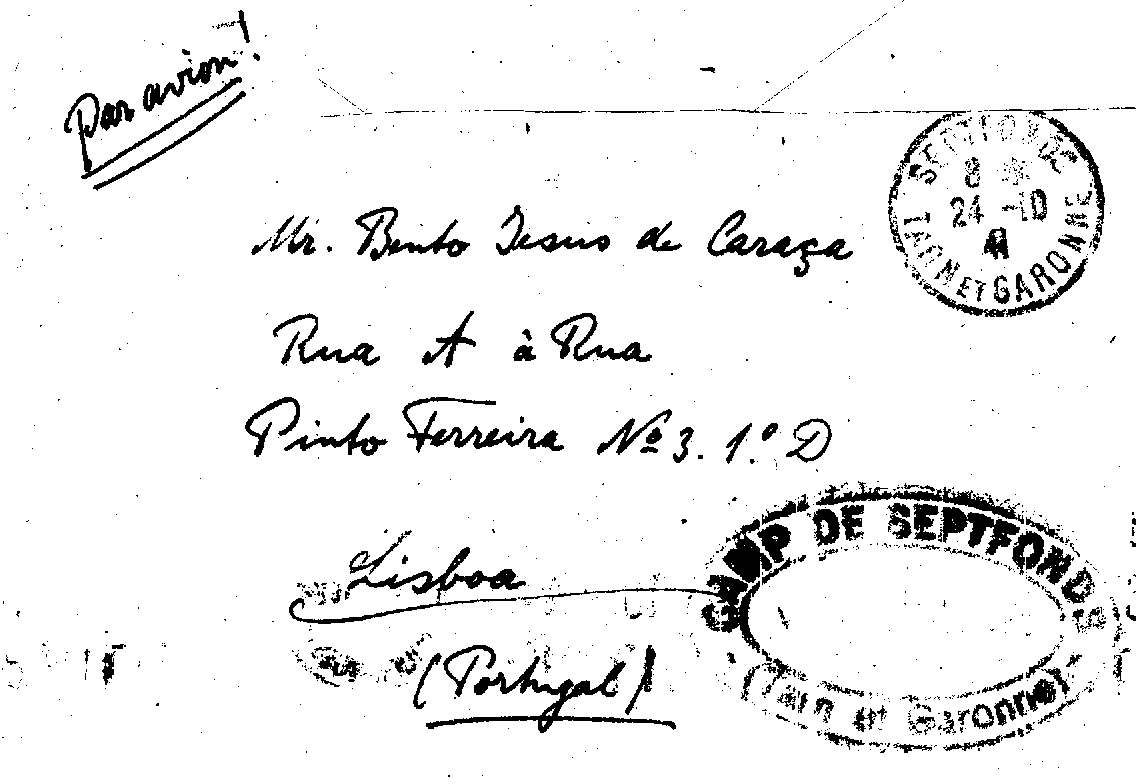 Par avion!
SEPTFONDS
8
24 -10
41
TARN ET GARONNE
Mr. Bento Jesus de Caraça
Rua A à Rua
Pinto Ferreira Nº 3. 1.º D
Lisboa
(Portugal)
CAMP DE SEPTFONDS
(Tarn et Garonne)